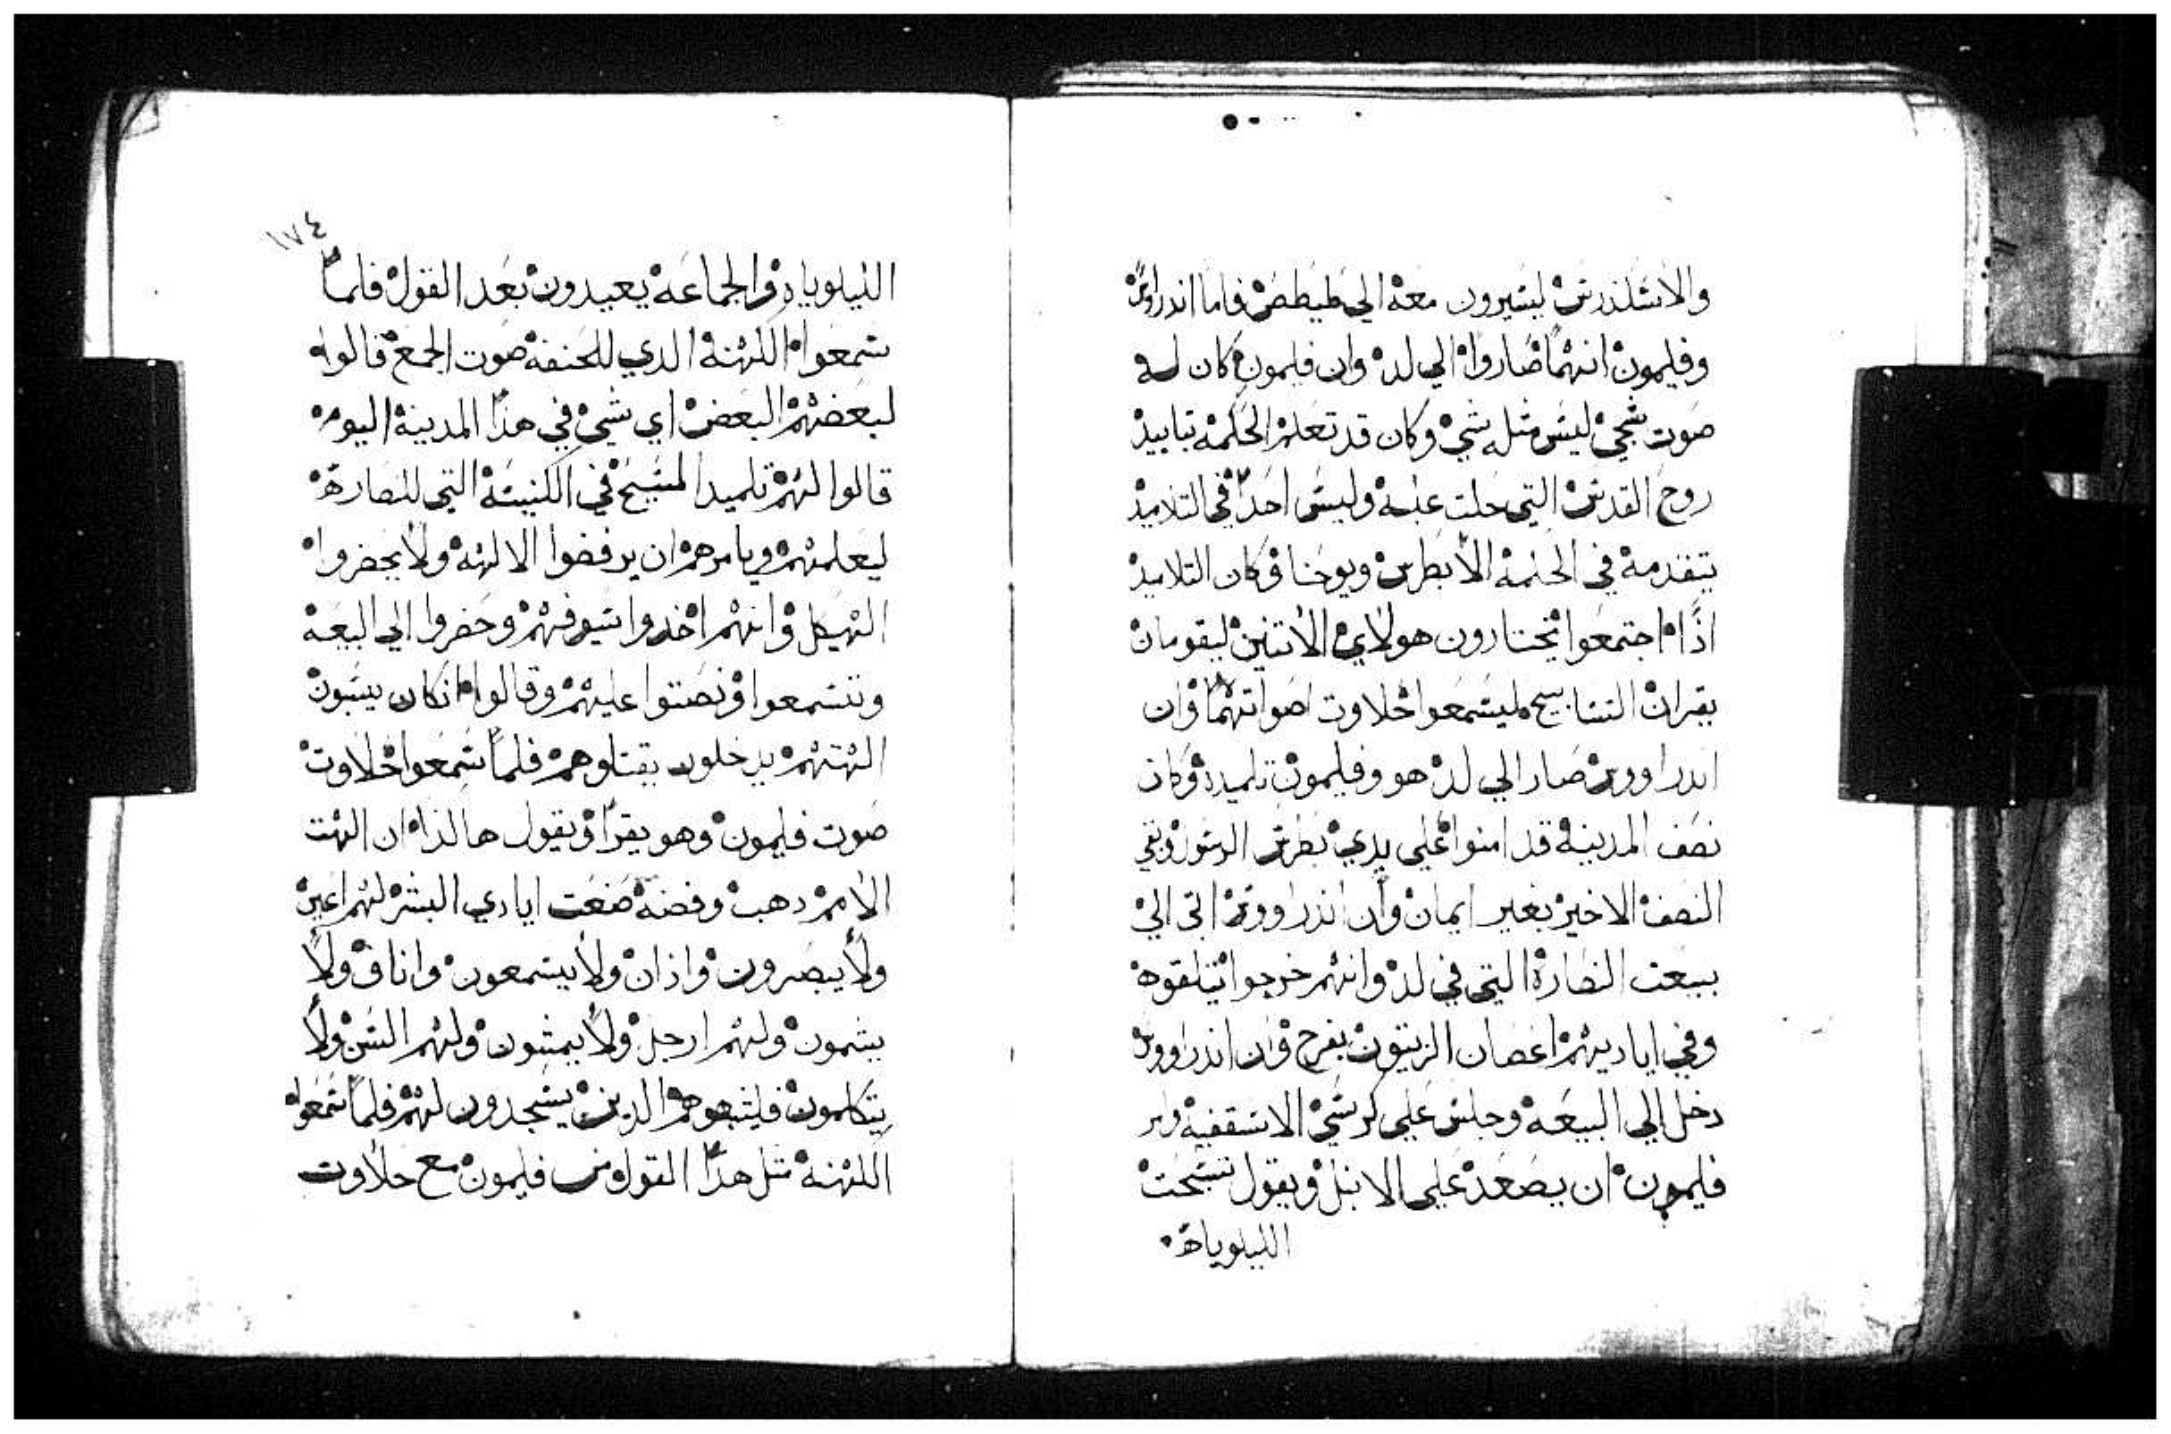 والاسكندرس ليسيرون معه الي طيطص فاما اندراوس
وفليمون انهما صاروا الي لد وان فليمون كان له
صوت شجي ليس مثله شي وكان قد تعلم الحكمه بتاييد
روح القدس التي حلت عليه وليس احدا في التلاميد
يتقدمه في الحكمه الا بطرس ويوحنا وكان التلاميد
اذا اجتمعوا يختارون هولاي الاتنين ليقومان
بقران التسابيح ليسمعوا حلاوت اصواتهما وان
اندراووس صار الي لد هو وفليمون تلميده وكان
نصف المدينه قد امنوا علي يدي بطرس الرسول وبقي
النصف الاخير بغير ايمان وان اندراووس اتى الي
بيعت النصارة التي في لد وانهم خرجوا يتلقوه
وفي اياديهم اغصان الزيتون بفرح وان اندراووس
دخل الي البيعه وجلس علي كرسي الاسقفيه وامر
فليمون ان يصعد علي الانبل ويقول تسبحت
الليلوياه
١٧٤
الليلوياه والجماعه يعيدون بعد القول فلما
سمعوا الكهنة الدي للحنفة صوت الجمع قالوا
لبعضهم البعض اي شي في هذا المدينة اليوم
قالوا لهم تلميد المسيح في الكنيسة التي للنصارة
ليعلمهم ويامرهم ان يرفضوا الالهه ولا يحضروا
الهيكل وانهم اخدوا سيوفهم وحضروا الي البيعة
وتسمعوا ونصتوا عليهم وقالوا ان كان يسبون
الهتهم يدخلون يقتلوهم فلما سمعوا حلاوت
صوت فليمون وهو يقرا ويقول هالذا ان الهت
الامم دهب وفضه صنعت ايادي البشر لهم اعين
ولا يبصرون واذان ولا يسمعون واناف ولا
يشمون ولهم ارجل ولا يمشون ولهم السن ولا
يتكلمون فليشبهوهم الدين يسجدون لهم فلما سمعوا
الكهنة متل هذا القول من فليمون مع حلاوت